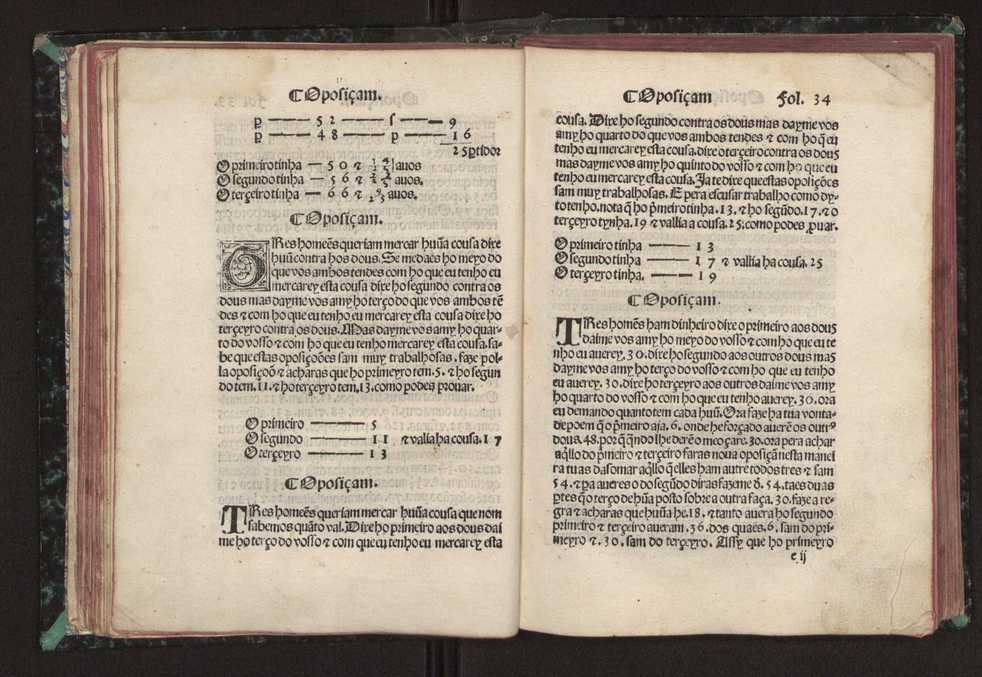 Oposiçam.
p 52 ſ 9
p 48 p 16
25 ptidor
O primeiro tinha — 50 ⁊ avos
O segundo tinha — 56 ⁊ avos.
O terçeiro tinha — 66 ⁊ avos.
Oposiçam.
TRes homeẽs queriam mercar huũa cousa dixe
huũ contra hos dous. Se me daẽs ho meyo do
que vos ambos tendes com ho que eu tenho eu
mercarey esta cousa dixe ho segundo contra os
dous mas dayme vos amy ho terço do que vos ambos tẽ
des ⁊ com ho que eu tenho eu mercarey esta cousa dixe ho
terçeyro contra os dous. Mas dayme vos amy ho quar-
to do vosso ⁊ com ho que eu tenho mercarey esta cousa. sa-
be que estas oposiçoões sam muy trabalhosas. faze pol-
la oposiçoõ ⁊ acharas que ho primeyro tem .5. ⁊ ho segun
do tem .11. ⁊ ho terçeyro tem .13. como podes prouar.
O primeiro — 5
O segundo — 11 ⁊ valia ha cousa .17
O terçeyro — 13
Oposiçam.
TRes homeẽs queriam mercar huũa cousa que nom
sabemos quãto val. Dixe ho primeiro aos dous dai
me ho terço do vosso ⁊ com que eu tenho eu mercarey esta
Oposiçam Fol. 34
cousa. Dixe ho segundo contra os dous mas dayme vos
amy ho quarto do que vos ambos tendes ⁊ com ho q̃ eu
tenho eu mercarey esta cousa. dixe o terçeiro contra os dous
mas dayme vos amy ho quinto do vosso ⁊ com ho que eu
tenho eu mercarey esta cousa. Ja te dixe que estas oposiçoẽs
sam muy trabalhosas. E pera escusar trabalho como dy-
to tenho. nota q̃ ho p̃meiro tinha .13. ⁊ ho segũdo .17. ⁊ o
terçeyro tynha .19 ⁊ vallia a cousa .25. como podes prouar.
O primeiro tinha — 13
O segundo tinha — 17 ⁊ vallia ha cousa .25
O terçeyro tinha. — 19
Oposiçam.
TRes homẽs ham dinheiro dixe o primeiro aos dous
daime vos amy ho meyo do vosso ⁊ com ho que eu te
nho eu auerey .30. dixe ho segundo aos outros dous mas
dayme vos amy ho terço do vosso ⁊ com ho que eu tenho
eu auerey .30. dixe ho terçeyro aos outros daime vos amy
ho quarto do vosso ⁊ com ho que eu tenho auerey .30. ora
eu demando quanto tem cada huũ. Ora faze ha tua vonta-
de poem q̃ o p̃meiro aja .6. onde he forçado auerẽ os outros
dous .48. por q̃ q̃ndo lhe derẽ o meo çarẽ .30. ora pera achar
aq̃llo do p̃meiro ⁊ terçeiro faras noua oposiçã nesta manei
ra tu as da somar aq̃llo q̃ elles ham autre todos tres ⁊ sam
54. ⁊ pa aueres o do segũdo diras fazeme d̃ .54. taes duas
ptes q̃ o terço de hũa posto sobre a outra faça .30. faze a re-
gra ⁊ acharas que huũa he .18. ⁊ tanto auera ho segundo
primeiro ⁊ terçeiro aueram .36. dos quaes .6. sam do pri-
meyro ⁊ .30. sam do terçeyro. Assy que ho primeyro
e ij